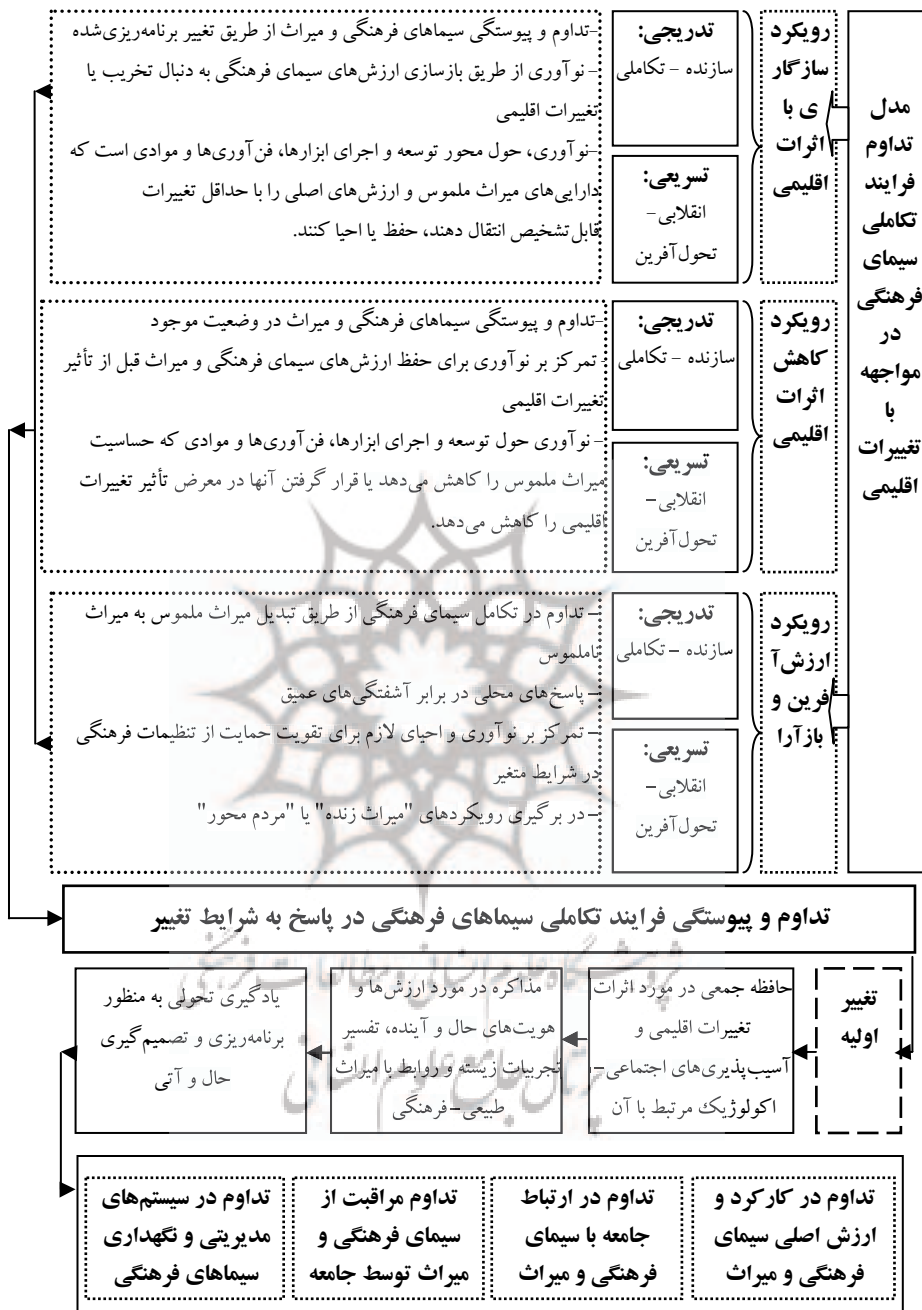 مدل
تداوم
فرایند
تکاملی
سیمای
فرهنگی
در
مواجهه
با
تغییرات
اقلیمی
رویکرد
سازگار
ی با
اثرات
اقلیمی
تدریجی:
سازنده - تکاملی
تسریعی:
انقلابی-
تحول‌آفرین
-تداوم و پیوستگی سیماهای فرهنگی و میراث از طریق تغییر برنامه‌ریزی‌شده
- نوآوری از طریق بازسازی ارزش‌های سیمای فرهنگی به دنبال تخریب یا
تغییرات اقلیمی
-نوآوری، حول محور توسعه و اجرای ابزارها، فن‌آوری‌ها و موادی است که
دارایی‌های میراث ملموس و ارزش‌های اصلی را با حداقل تغییرات
قابل‌تشخیص انتقال دهند، حفظ یا احیا کنند.
رویکرد
کاهش
اثرات
اقلیمی
تدریجی:
سازنده - تکاملی
تسریعی:
انقلابی-
تحول‌آفرین
-تداوم و پیوستگی سیماهای فرهنگی و میراث در وضعیت موجود
- تمرکز بر نوآوری برای حفظ ارزش‌های سیمای فرهنگی و میراث قبل از تأثیر
تغییرات اقلیمی
- نوآوری حول توسعه و اجرای ابزارها، فن‌آوری‌ها و موادی که حساسیت
میراث ملموس را کاهش می‌دهد یا قرار گرفتن آنها در معرض تأثیر تغییرات
اقلیمی را کاهش می‌دهد.
رویکرد
ارزش‌آ
فرین و
بازآرا
تدریجی:
سازنده - تکاملی
تسریعی:
انقلابی-
تحول‌آفرین
- تداوم در تکامل سیمای فرهنگی از طریق تبدیل میراث ملموس به میراث
ناملموس
- پاسخ‌های محلی در برابر آشفتگی‌های عمیق
- تمرکز بر نوآوری و احیای لازم برای تقویت حمایت از تنظیمات فرهنگی
در شرایط متغیر
-در برگیری رویکردهای "میراث زنده" یا "مردم محور"
تداوم و پیوستگی فرایند تکاملی سیماهای فرهنگی در پاسخ به شرایط تغییر
تغییر
اولیه
حافظه جمعی در مورد اثرات
تغییرات اقلیمی و
آسیب‌پذیری‌های اجتماعی-
اکولوژیک مرتبط با آن
مذاکره در مورد ارزش‌ها و
هویت‌های حال و آینده، تفسیر
تجربیات زیسته و روابط با میراث
طبیعی-فرهنگی
یادگیری تحولی به منظور
برنامه‌ریزی و تصمیم‌گیری
حال و آتی
پژوهشگاه علوم انسانی و مطالعات فرهنگی
پرتال جامع علوم انسانی
تداوم در کارکرد و
ارزش اصلی سیمای
فرهنگی و میراث
تداوم در ارتباط
جامعه با سیمای
فرهنگی و میراث
تداوم مراقبت از
سیمای فرهنگی و
میراث توسط جامعه
تداوم در سیستم‌های
مدیریتی و نگهداری
سیماهای فرهنگی